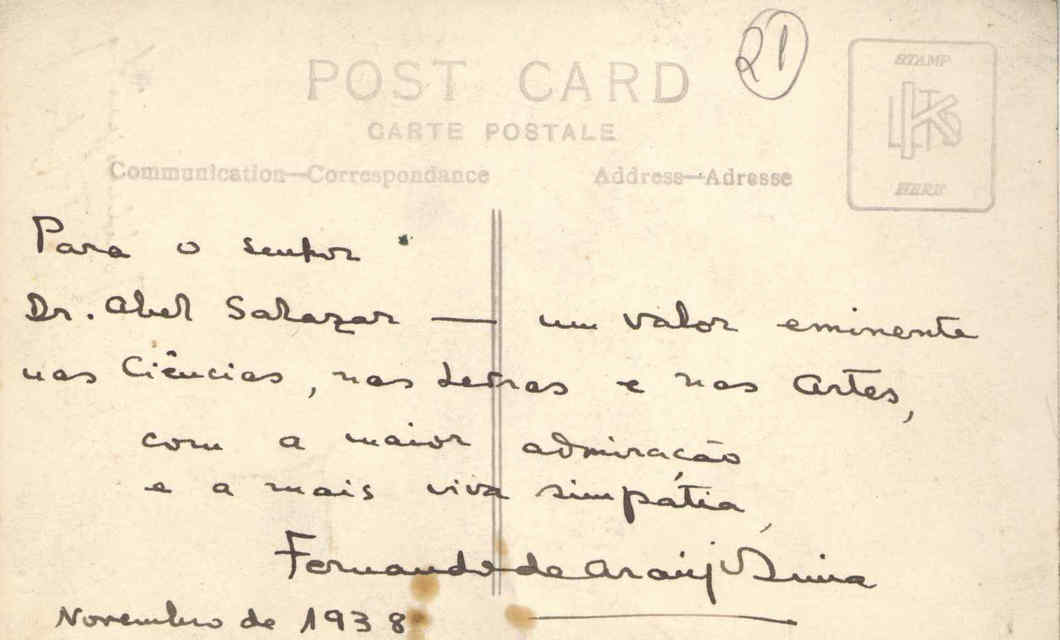 21
POST CARD
CARTE POSTALE
Communication—Correspondance
Address—Adresse
STAMP
HERE
Para o senhor
Dr. Abel Salazar — um valor eminente
nas Ciências, nas Letras e nas Artes,
com a maior admiração
e a mais viva simpátia,
Fernando de Araújo Lima
Novembro de 1938